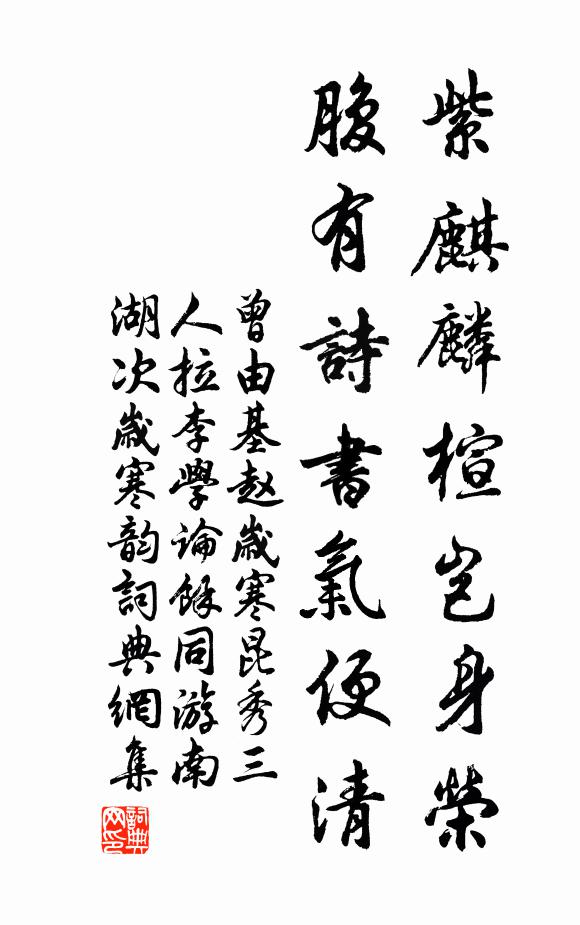 紫麒麟楦岂身榮
腹有詩書氣便清
曾由基赵歲寒昆秀三
人拉李學論餘同游南
湖次歲寒韵詞典網集
詞典
网印